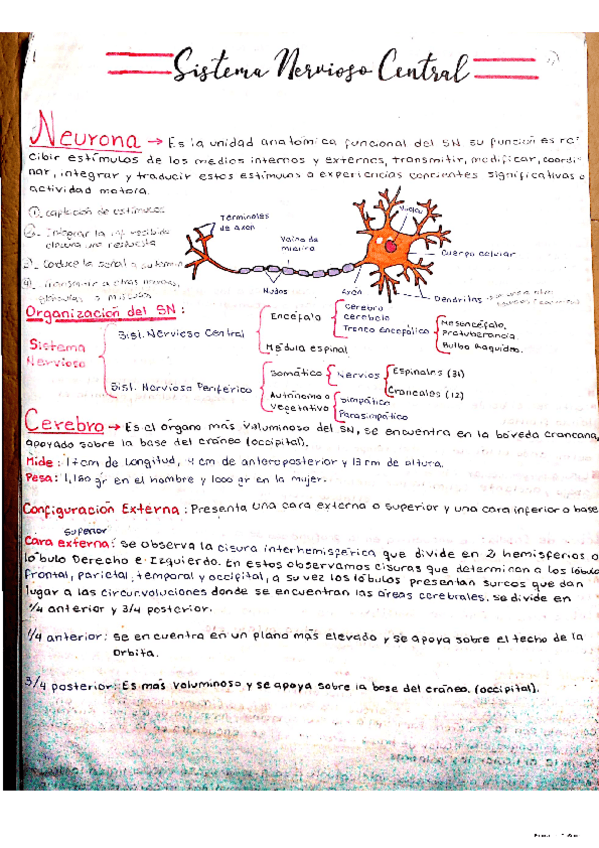 Sistema Nervioso Central
Neurona → Es la unidad anatómica funcional del SN su función es re-
cibir estímulos de los medios internos y externos, transmitir, modificar, coordi-
nar, integrar y traducir estos estímulos a experiencias concientes significativas o
actividad motora.
① captación de estímulos
② Integrar la inf. recibida
elabora una respuesta
3. Coduce la señal a
④ Transmitir a otras
glándulas o músculos
Terminales
de axon
Vaina de
mielina
Nodos
Axón
Nucleo
Cuerpo celular
Dendritas
Organización del SN:
Sistema
Nervioso
Sist. Nervioso Central
Encéfalo
Cerebro
Cerebelo
Tronco Encefálico
Mesencéfalo.
Protuberancia
Bulbo Raquídeo.
Médula espinal
Sist. Nervioso Periférico
Somático
Nervios
Espinales (31)
Craneales (12)
Autónomo o
vegetativo
Simpático
Parasimpático
Cerebro → Es el órgano más voluminoso del SN, se encuentra en la bóveda craneana,
apoyado sobre la base del cráneo (occipital).
Mide: 17cm de longitud, 14 cm de anteroposterior y 13 cm de altura.
Pesa: 1,180 gr en el hombre y 1000 gr en la mujer.
Configuración Externa: Presenta una cara externa o superior y una cara inferior o base
superior
Cara externa: se observa la cisura interhemisférica que divide en 2 hemisferios o
lóbulo Derecho e Izquierdo. En estos observamos cisuras que determinan a los lóbulo
Frontal, parietal, temporal y occipital, a su vez los lóbulos presentan surcos que dan
lugar a las circunvoluciones donde se encuentran las áreas cerebrales. se divide en
1/4 anterior y 3/4 posterior.
1/4 anterior: se encuentra en un plano más elevado y se apoya sobre el techo de la
orbita.
3/4 posterior: Es más voluminoso y se apoya sobre la base del cráneo. (occipital).